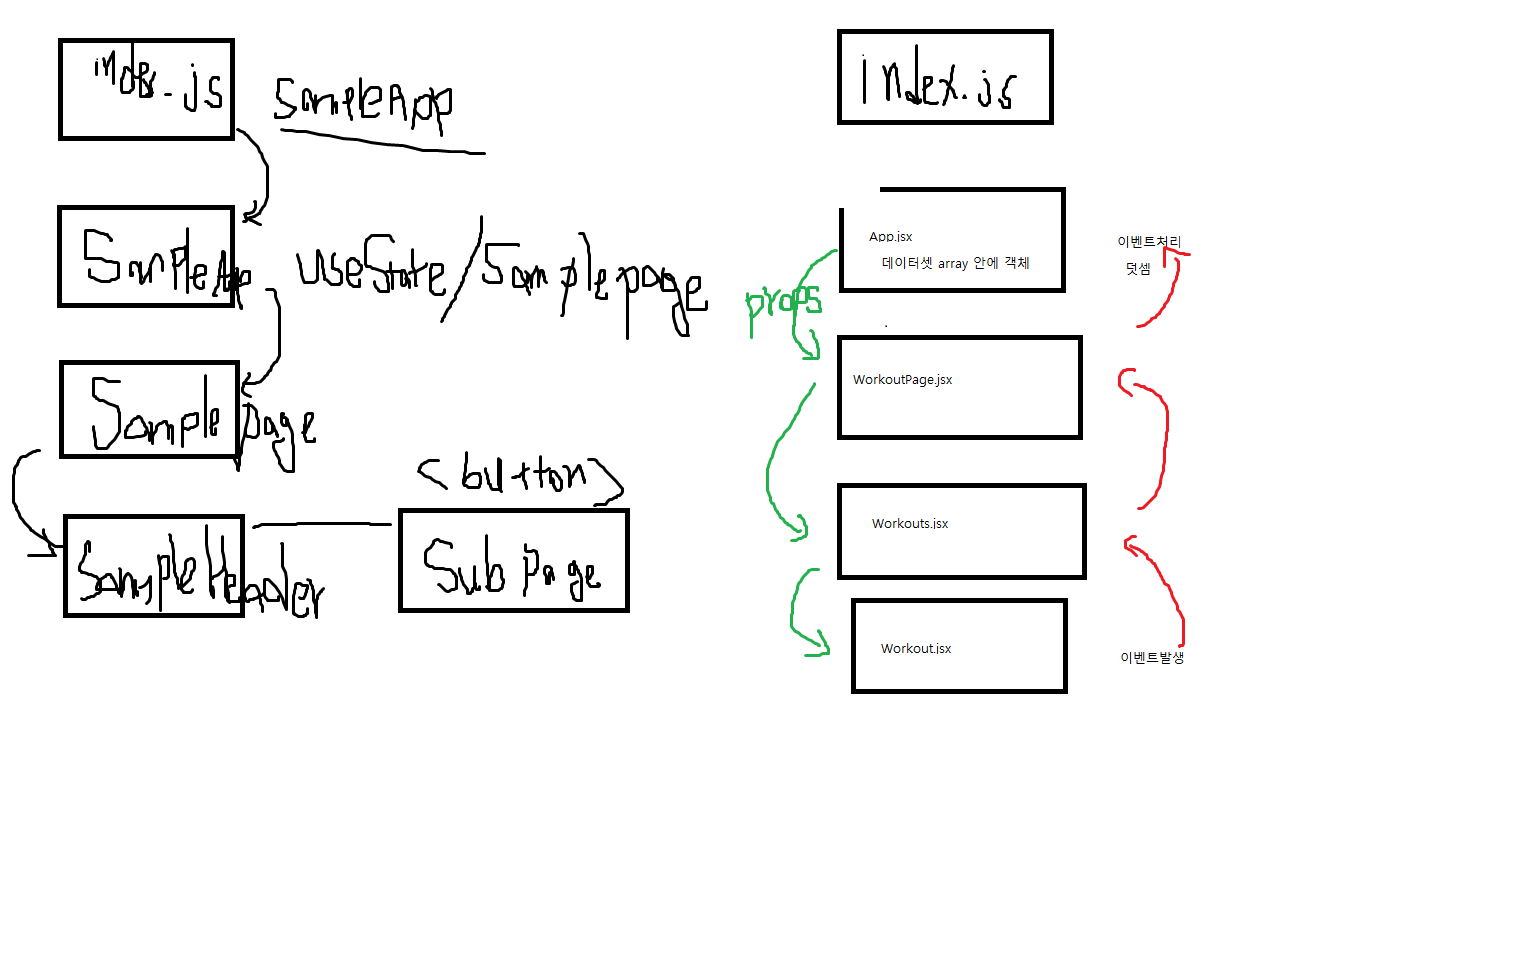 index.js
SampleApp
SampleApp
useState/Samplepage
Sample page
<button>
SampleHeader
Sub Page
index.js
App.jsx
데이터셋 array 안에 객체
이벤트처리
덧셈
props
WorkoutPage.jsx
Workouts.jsx
Workout.jsx
이벤트발생